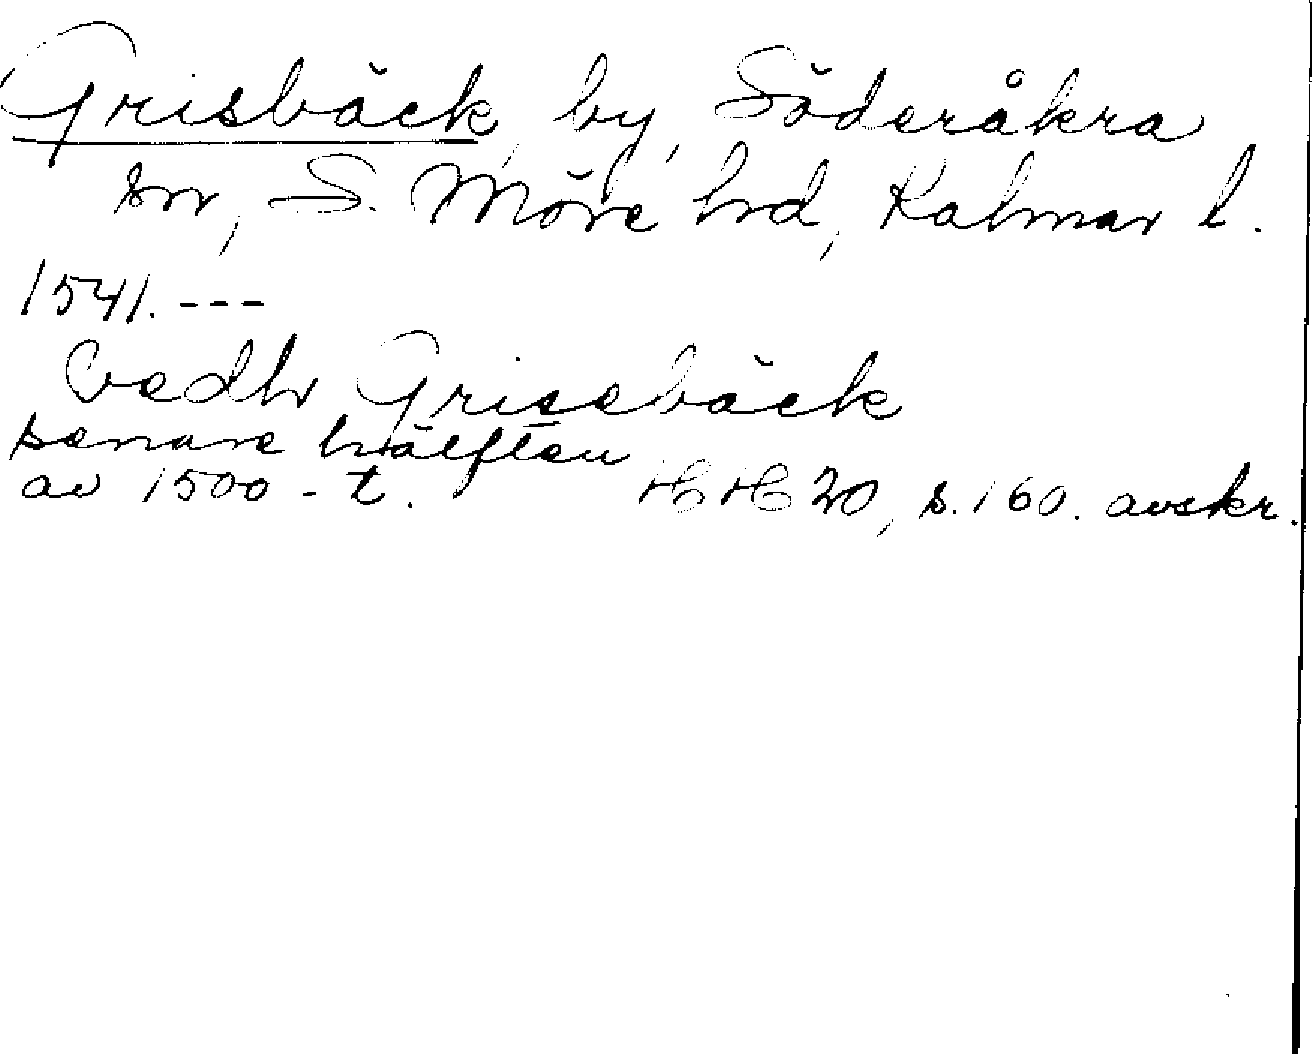 Grisbäck, by, Söderåkra
sn, S. Möre hd, Kalmar l.
1541. ---
vedh Grisebäck
senare hälften
av 1500-t. HH 20, s. 160. avskr.